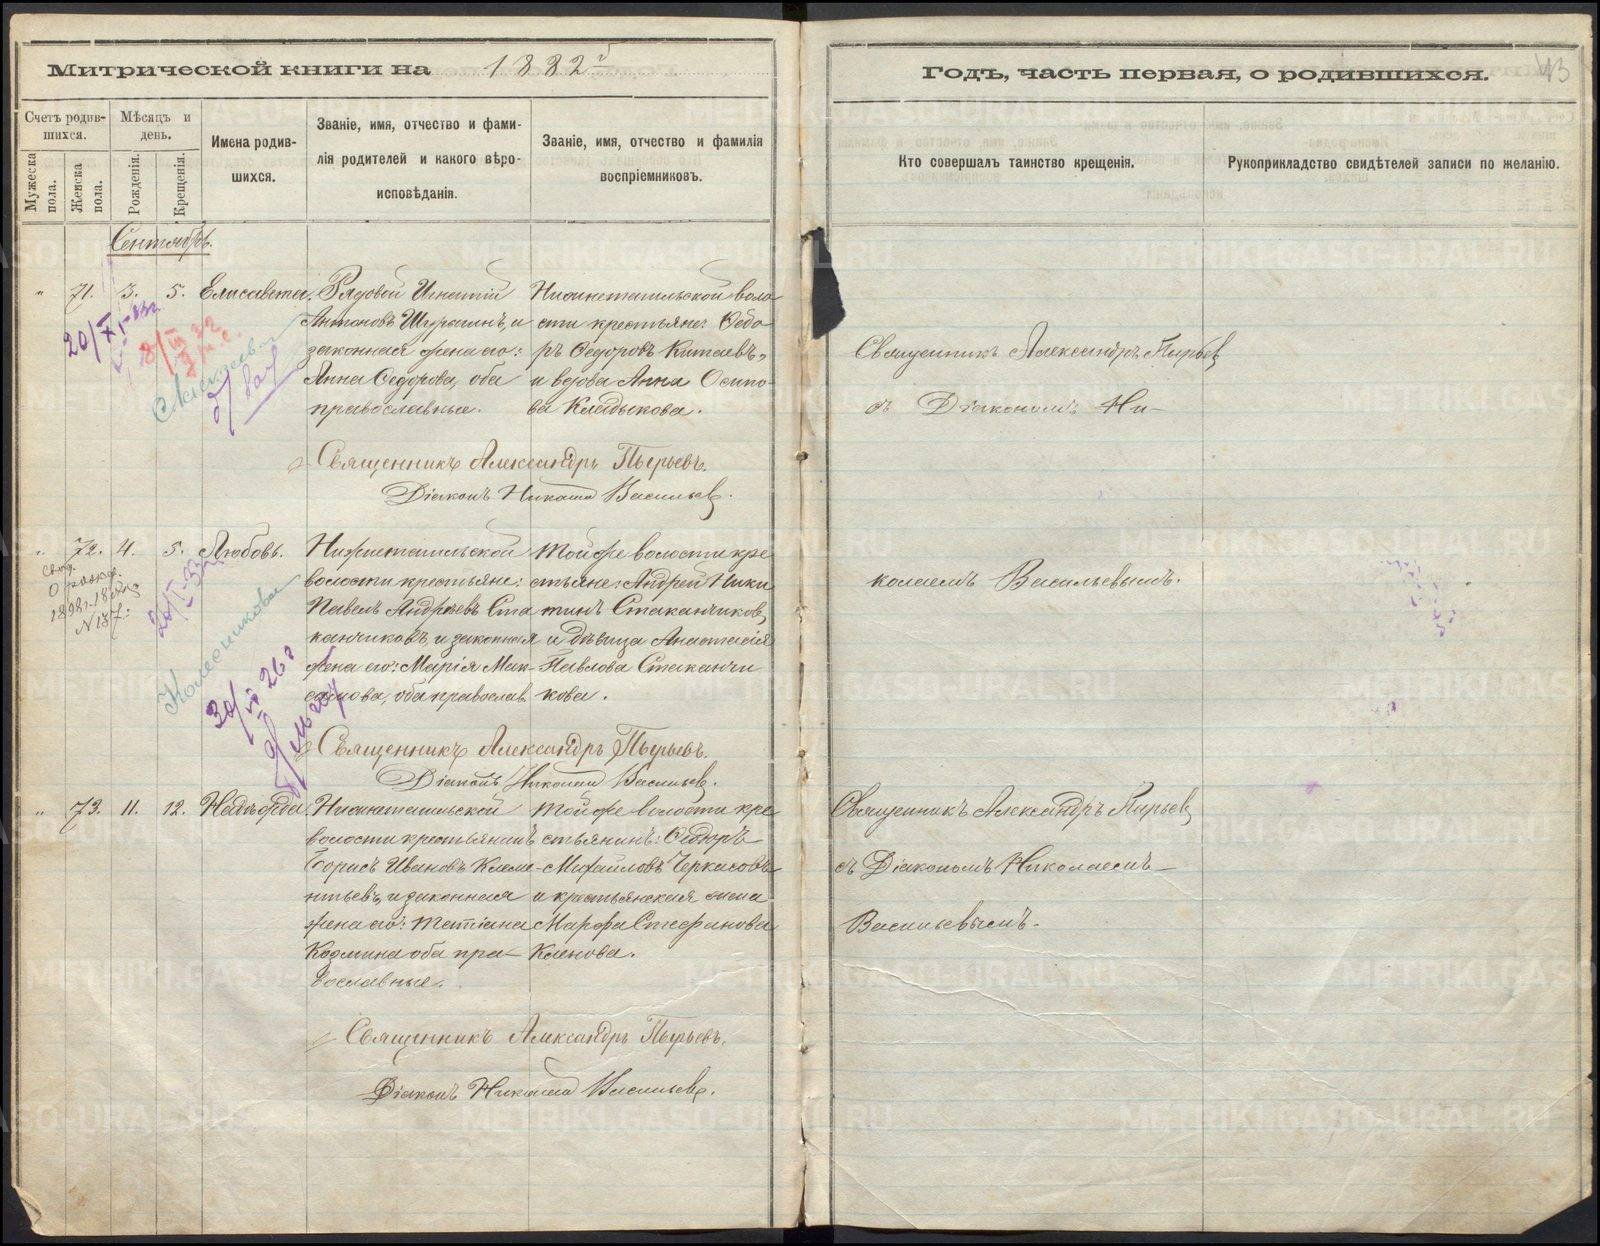 Митрической книги на 1882 г
Годъ, часть первая, о родившихся.
43
Счетъ родив-
шихся.
Мужеска
пола.
Женска
пола.
Мѣсяцъ и
день.
Рожденія.
Крещенія.
Имена родив-
шихся.
Званіе, имя, отчество и фами-
лія родителей и какого вѣро-
исповѣданія.
Званіе, имя, отчество и фамилія
воспріемниковъ.
Кто совершалъ таинство крещенія.
Рукоприкладство свидѣтелей записи по желанію.
Сентябрь.
" 71. 3. 5. Елисавета.
Рядовой Игнатій
Антоновъ и
законная жена его:
Анна Ѳедорова, оба
православные.
Нижнетагильской воло
сти крестьяне: Ѳедо
ръ Ѳедоровъ Китаевъ,
и вдова Анна Осипо-
ва Кладыкова.
Священникъ Александръ Пырьев
съ Діакономъ Ни-
Священникъ Александръ Пырьевъ.
Діаконъ Николай Васильев.
" 72. 4. 5. Любовь.
Нижнетагильской
волости крестьяне:
Павелъ Андреевъ Ста
канчиковъ и законная
жена его: Марія Мак-
симова, оба православ
той же волости кре
стьяне: Андрей Ники
тинъ Стаканчиков,
и дѣвица Анастасія
Павлова Стаканчи
кова.
колаемъ Васильевымъ.
Священникъ Александръ Пырьевъ.
Діаконъ Николай Васильев.
О рожд.
1898 г. 18
N 137:
20/XI-33г
20/II-33г
Колесникова
30/VI 26г
" 73. 11. 12. Надежда.
Нижнетагильской
волости крестьянинъ
Борисъ Ивановъ Клеме-
нтьевъ, и законная
жена его: Татіана
Козмина оба пра-
вославные.
той же волости кре
стьянинъ: Ѳедоръ
Михайловъ Черкасовъ
и крестьянская жена
Марфа Стефанова
Кленова.
Священникъ Александръ Пырьев
съ Діакономъ Николаемъ
Васильевымъ.
Священникъ Александръ Пырьевъ.
Діаконъ Николай Васильев.
METRIKI.GASO-URAL.RU